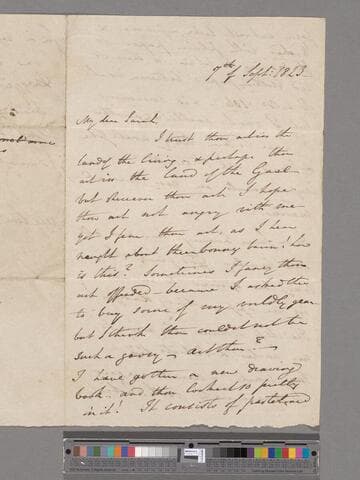 7th of Sept: 1823
My dear Sarah
I trust thou art in the
land of the living - & perhaps thou
art in the Land of the Gael -
but thou art I hope
thou art not angry with me
yet I fear thou art, as I hear
naught about thee bonny bairn! how
is this? Sometimes I fancy thou
art offended - because I asked thee
to buy some of my worldly gear
but I think thou couldst not be
such a goosey - art thou? -
I have gotten a new drawing
book - and thou lookest so pretty
in it! It consists of